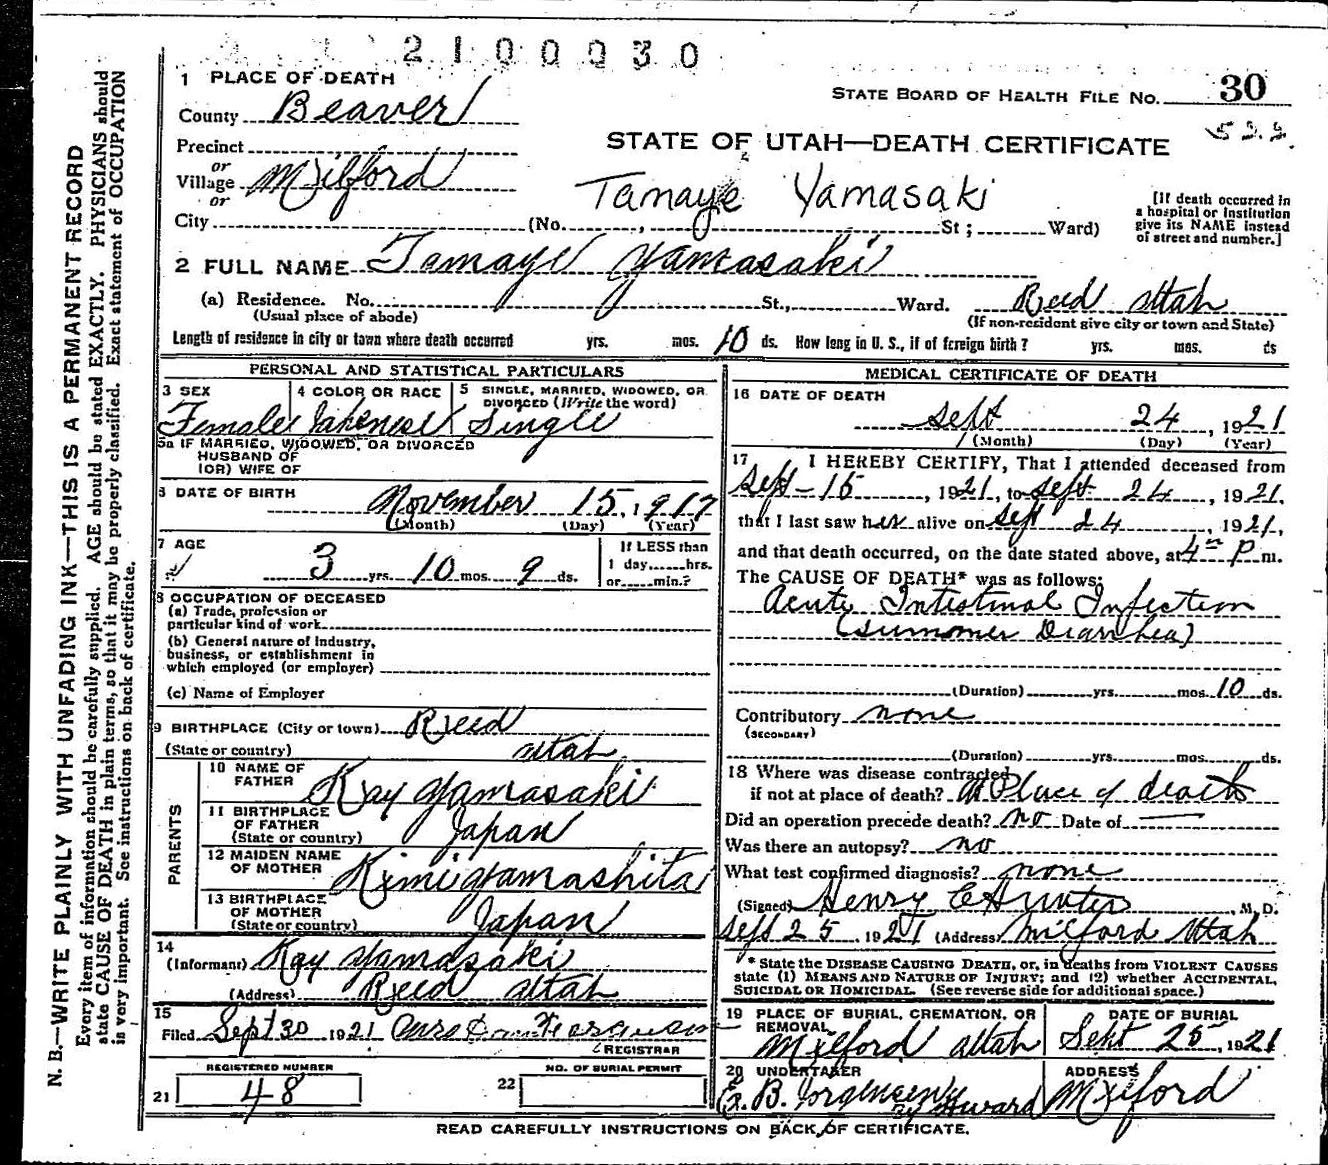 2100030
1 PLACE OF DEATH
STATE BOARD OF HEALTH FILE NO. 30
County Beaver
522.
STATE OF UTAH—DEATH CERTIFICATE
Precinct
or
Village Milford
or
Tamaye Yamasaki
[If death occurred in a hospital or institution give its NAME instead of street and number.]
City (No. , St; Ward)
2 FULL NAME Tamaye Yamasaki
(a) Residence. No. St., Ward. Reed Utah
(Usual place of abode) (If non-resident give city or town and State)
Length of residence in city or town where death occurred yrs. mos. 10 ds. How long in U. S., if of foreign birth? yrs. mos. ds
PERSONAL AND STATISTICAL PARTICULARS
3 SEX 4 COLOR OR RACE 5 SINGLE, MARRIED, WIDOWED, OR DIVORCED (Write the word)
Female Japenese Single
5a IF MARRIED, WIDOWED, OR DIVORCED
HUSBAND OF
(OR) WIFE OF
6 DATE OF BIRTH
November 15, 1917
(Month) (Day) (Year)
7 AGE
3 yrs. 10 mos. 9 ds.
If LESS than
1 day......hrs.
or......min.?
8 OCCUPATION OF DECEASED
(a) Trade, profession or
particular kind of work
(b) General nature of industry,
business, or establishment in
which employed (or employer)
(c) Name of Employer
9 BIRTHPLACE (City or town) Reed
(State or country) Utah
PARENTS
10 NAME OF
FATHER Kay Yamasaki
11 BIRTHPLACE
OF FATHER
(State or country) Japan
12 MAIDEN NAME
OF MOTHER Kimi Yamashita
13 BIRTHPLACE
OF MOTHER
(State or country) Japan
14
(Informant) Kay Yamasaki
(Address) Reed Utah
15
Filed Sept 30 1921 Ferguson
REGISTRAR
REGISTERED NUMBER
21 48
NO. OF BURIAL PERMIT
22
MEDICAL CERTIFICATE OF DEATH
16 DATE OF DEATH
Sept 24, 1921
(Month) (Day) (Year)
17 I HEREBY CERTIFY, That I attended deceased from
Sept - 15, 1921, to Sept 24, 1921.
that I last saw her alive on Sept 24, 1921,
and that death occurred, on the date stated above, at 4 P m.
The CAUSE OF DEATH* was as follows:
Acute Intestinal Infection
(Summer Diarrhea)
(Duration) yrs. mos. 10 ds.
Contributory none
(SECONDARY)
(Duration) yrs. mos. ds.
18 Where was disease contracted
if not at place of death? At Place of death
Did an operation precede death? no Date of —
Was there an autopsy? no
What test confirmed diagnosis? none
(Signed) Henry C Hunter, M. D.
Sept 25, 1921 (Address) Milford Utah
* State the DISEASE CAUSING DEATH, or, in deaths from VIOLENT CAUSES
state (1) MEANS AND NATURE OF INJURY; and (2) whether ACCIDENTAL,
SUICIDAL OR HOMICIDAL. (See reverse side for additional space.)
19 PLACE OF BURIAL, CREMATION, OR
REMOVAL
Milford Utah
DATE OF BURIAL
Sept 25, 1921
20 UNDERTAKER
B. Jorgensen
By Howard
ADDRESS
Milford
READ CAREFULLY INSTRUCTIONS ON BACK OF CERTIFICATE.
N. B.—WRITE PLAINLY WITH UNFADING INK—THIS IS A PERMANENT RECORD
Every item of information should be carefully supplied. AGE should be stated EXACTLY. PHYSICIANS should
state CAUSE OF DEATH in plain terms, so that it may be properly classified. Exact statement of OCCUPATION
is very important. See instructions on back of certificate.